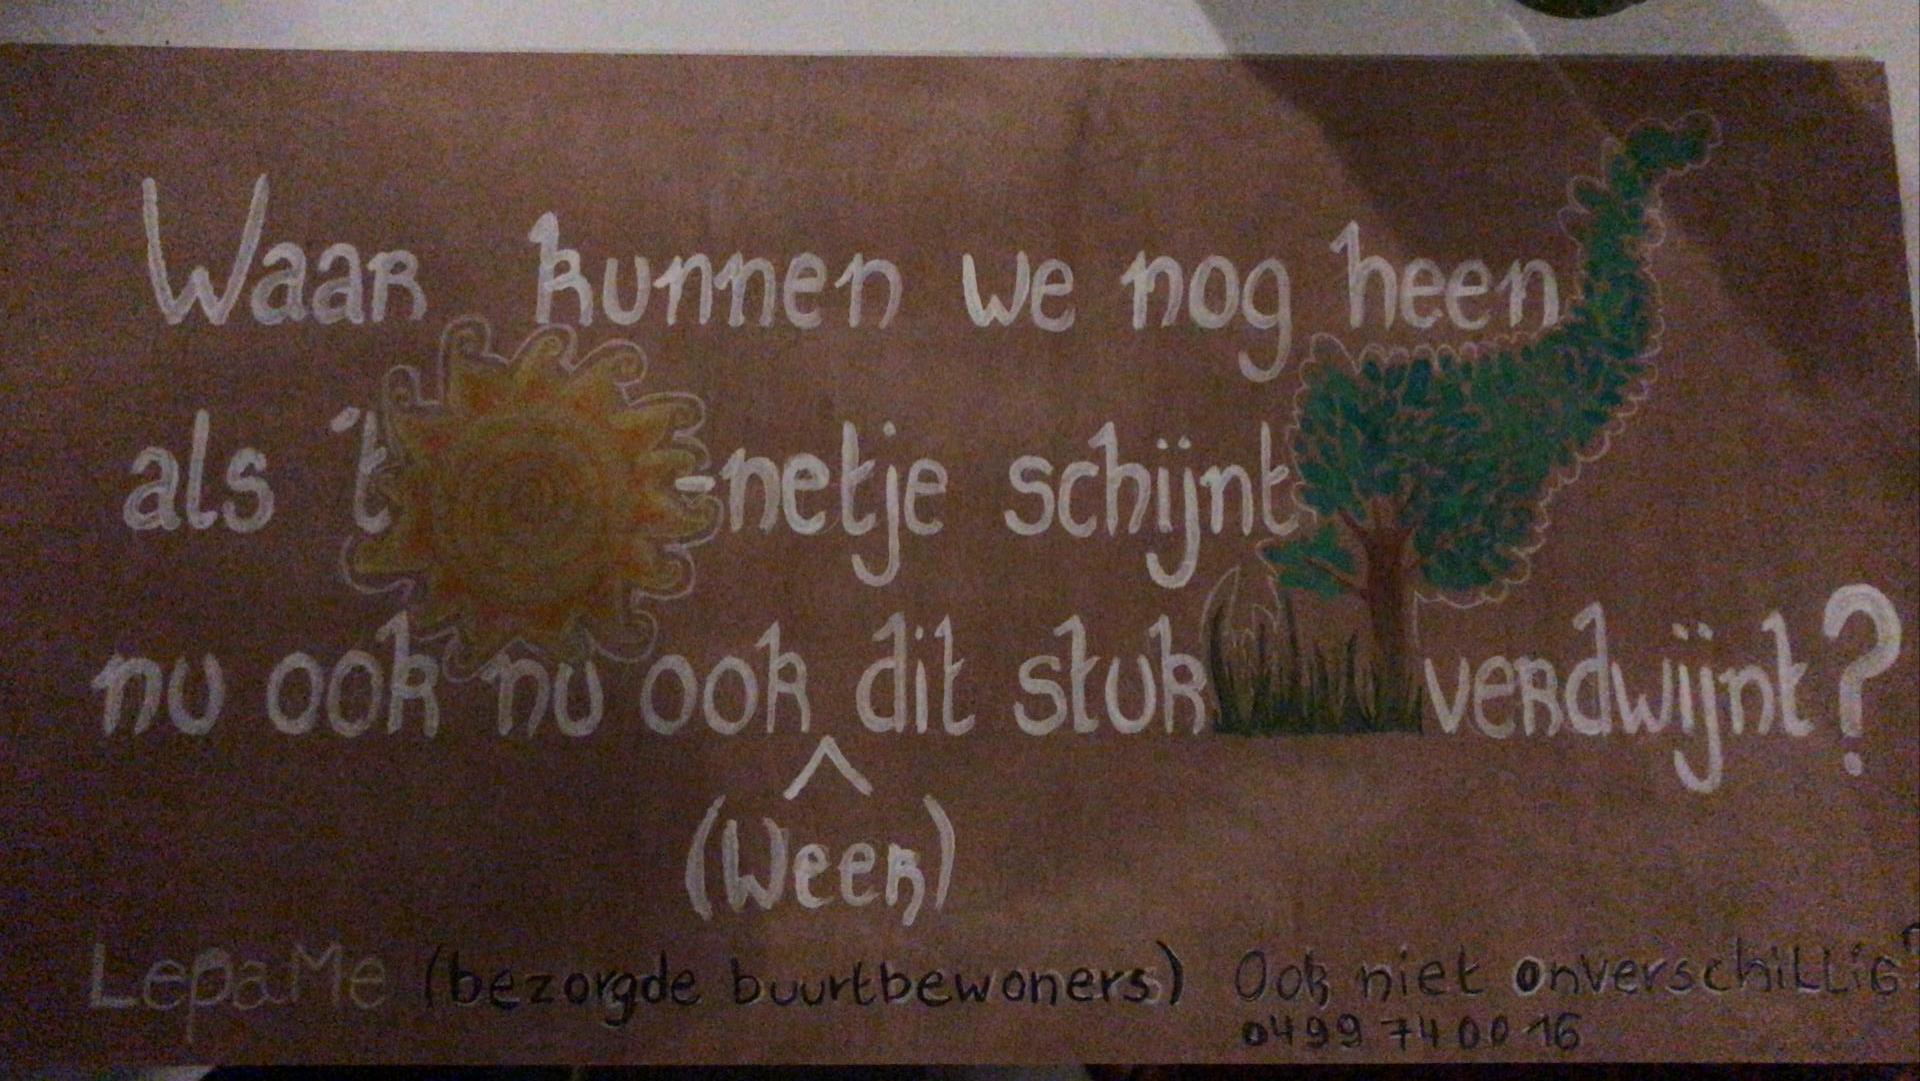 Waar kunnen we nog heen
als 't -netje schijnt
nu ook nu ook dit stuk verdwijnt?
^
(Weer)
LepaMe (bezorgde buurtbewoners) Ook niet onverschillig?
0499 74 00 16